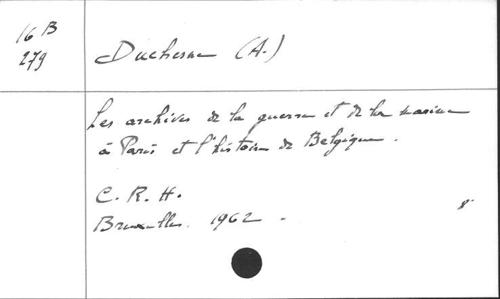 16 B
279
Duchesne (A.)
Les archives de la guerre et de la marine
à Paris et l'histoire de Belgique.
C. R. H.
Bruxelles. 1962.
8°